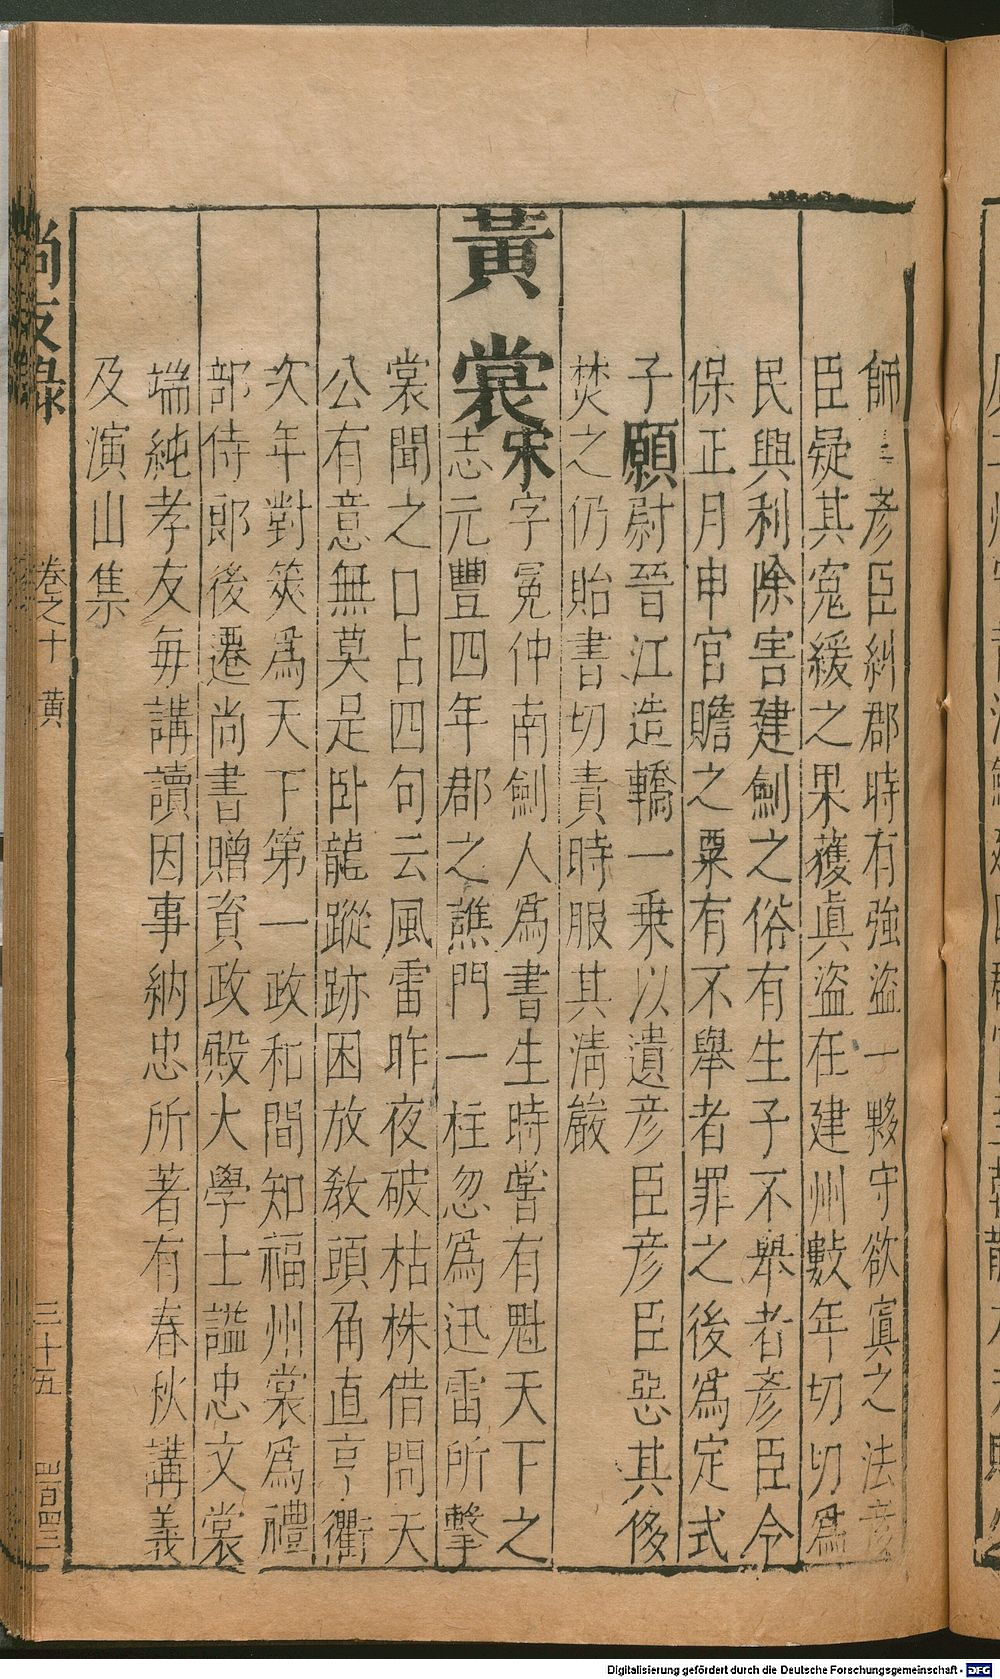 師彥臣糾郡時有強盜一夥守欲寘之法彥
臣疑其寃緩之果獲眞盜在建州數年切切爲
民興利除害建劍之俗有生子不舉者彥臣令
保正月申官贍之粟有不舉者罪之後爲定式
子願尉晉江造轎一乗以遺彥臣彥臣惡其侈
焚之仍貽書切責時服其淸嚴
黃裳宋字冕仲南劍人爲書生時嘗有魁天下之
志元豐四年郡之譙門一柱忽爲迅雷所擊
裳聞之口占四句云風雷昨夜破枯株借問天
公有意無莫是卧龍蹤跡困放敎頭角直亨衢
次年對筴爲天下第一政和間知福州裳爲禮
部侍郞後遷尚書贈資政殿大學士謚忠文裳
端純孝友每講讀因事納忠所著有春秋講義
及演山集
尚友錄 卷之十 黃 三十五
Digitalisierung gefördert durch die Deutsche Forschungsgemeinschaft - DFG